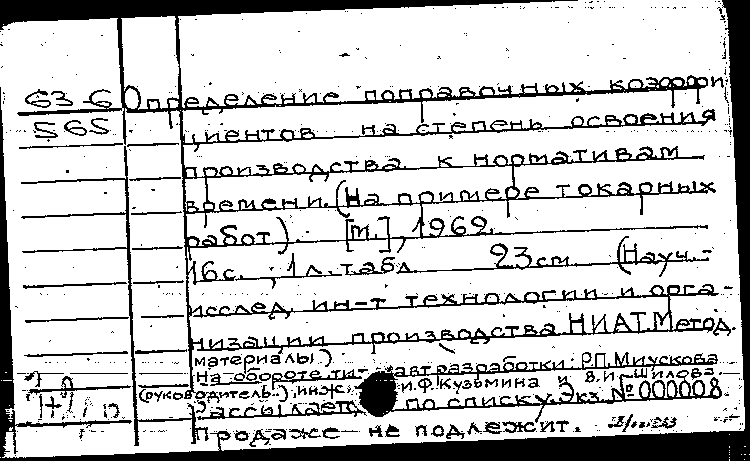 63-6 Определение поправочных коэффи
565 циентов на степень освоения
производства к нормативам
времени. (На примере токарных
работ). [М.], 1962.
16с.; 1л. табл. 23см. (Науч.-
исслед. ин-т технологии и орга-
низации производства НИАТ. Метод.
материалы)
На обороте тит. авт. разработки: Р.П. Миускова
(руководитель), инж. И.Ф. Кузьмина и В.И. Шилова.
Рассылается по списку. Экз. № 000008.
Продаже не подлежит.